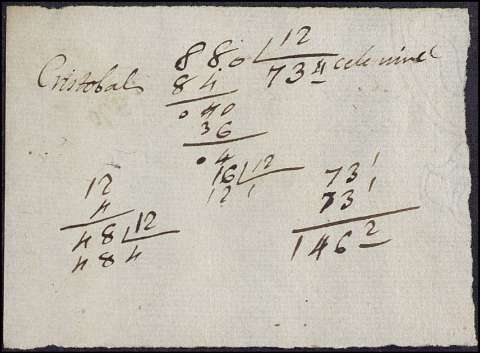 880 12
Cristobal 84 734 celemines
040
36
04
16 12
12 1
12
4
48 12
48 4
73 1
73 1
146 2